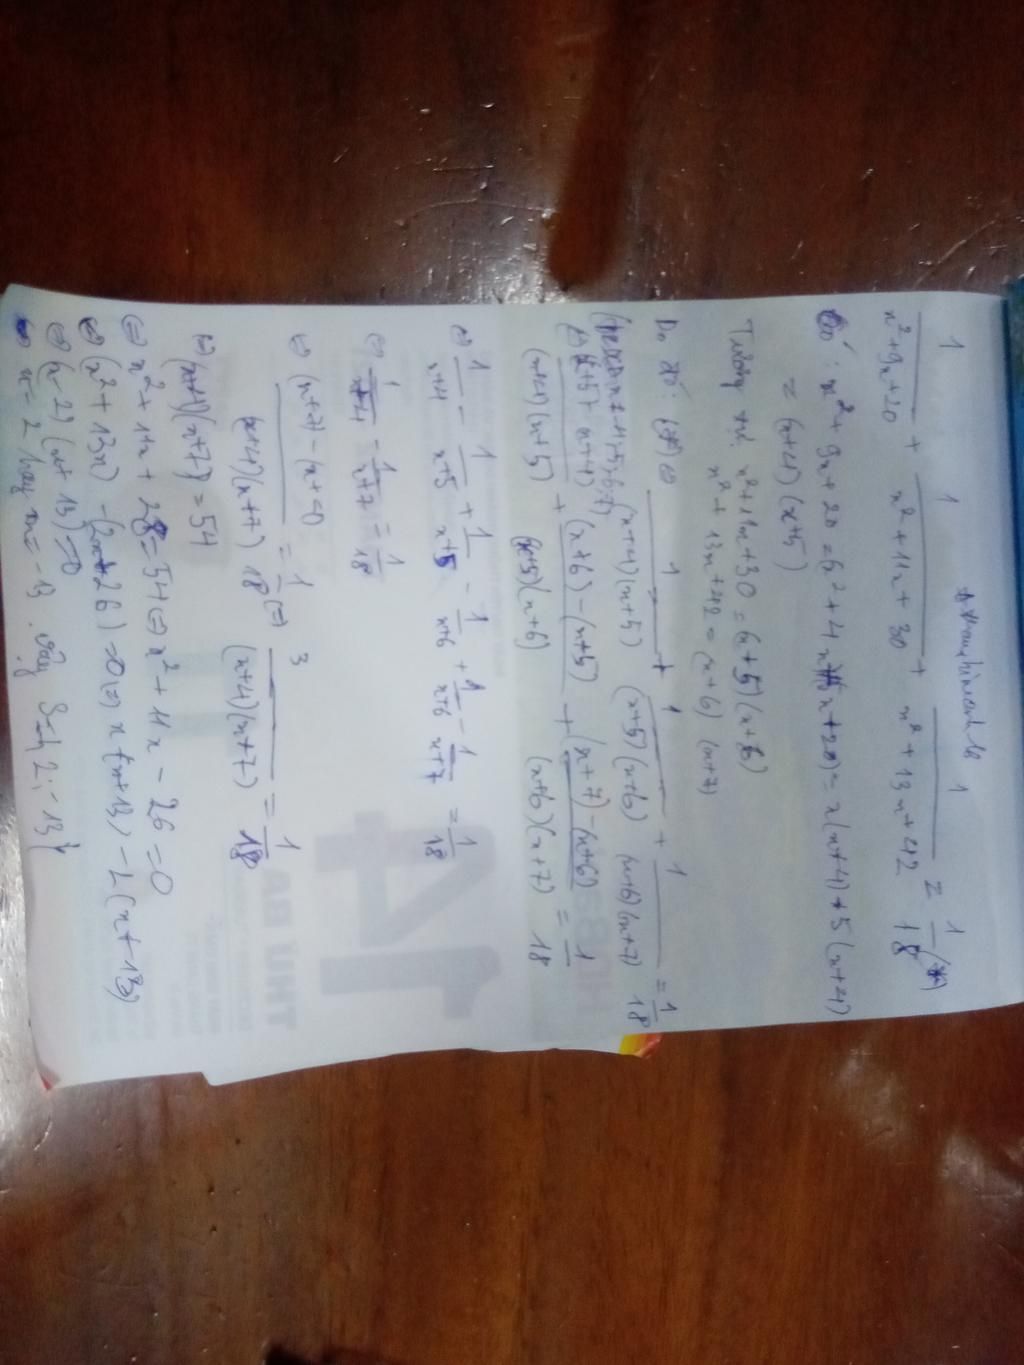 1 / x² + 9x + 20 + 1 / x² + 11x + 30 + 1 / x² + 13x + 42 = 1 / 18 (*)
Có : x² + 9x + 20 = x² + 4x + 5x + 20 = x(x+4) + 5(x+4)
= (x+4)(x+5)
Tương tự: x² + 11x + 30 = (x+5)(x+6)
x² + 13x + 42 = (x+6)(x+7)
Do đó: (*) ⇔ 1 / (x+4)(x+5) + 1 / (x+5)(x+6) + 1 / (x+6)(x+7) = 1 / 18
⇔ (x+5) - (x+4) / (x+4)(x+5) + (x+6) - (x+5) / (x+5)(x+6) + (x+7) - (x+6) / (x+6)(x+7) = 1 / 18
⇔ 1 / x+4 - 1 / x+5 + 1 / x+5 - 1 / x+6 + 1 / x+6 - 1 / x+7 = 1 / 18
⇔ 1 / x+4 - 1 / x+7 = 1 / 18
⇔ (x+7) - (x+4) / (x+4)(x+7) = 1 / 18 ⇔ 3 / (x+4)(x+7) = 1 / 18
⇔ (x+4)(x+7) = 54
⇔ x² + 11x + 28 = 54 ⇔ x² + 11x - 26 = 0
⇔ (x² + 13x) - (2x + 26) = 0 ⇔ x(x+13) - 2(x+13)
⇔ (x-2)(x+13) = 0
⇔ x = 2 hay x = -13 . Vậy S = {2; -13}